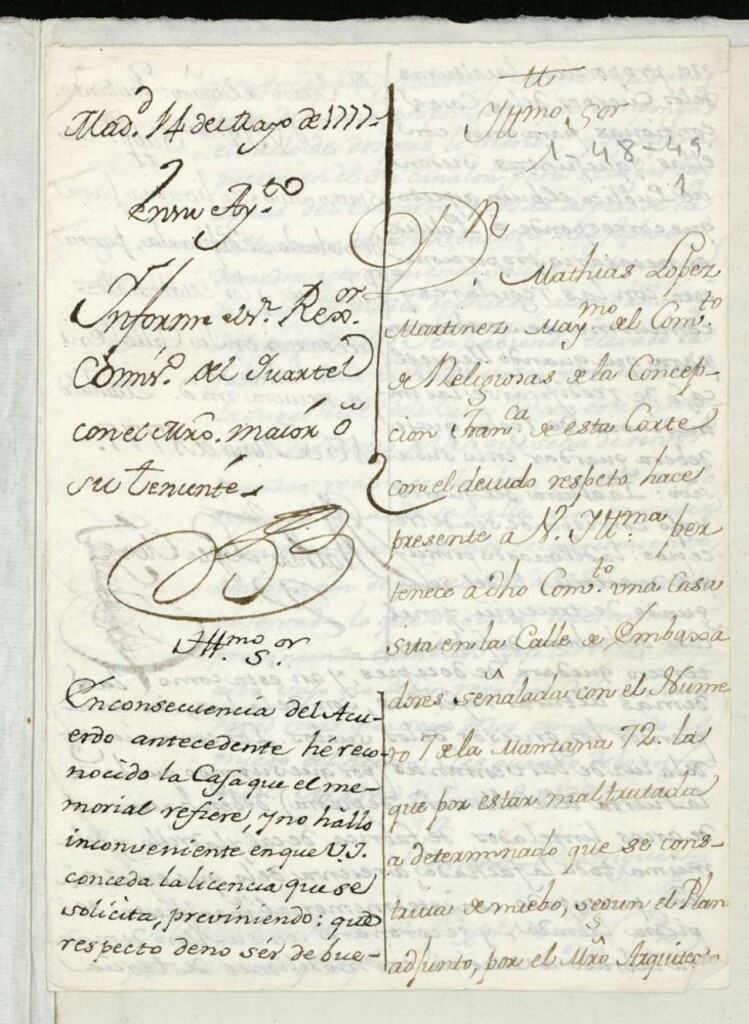 Mad.d 14 de Mayo de 1777.
En su Ay.to
Informe el S.r Rex.or
Comis.o del Quartel
con el Mro. maior ô
su teniente
Ill.mo S.or
En consecuencia del Acu-
erdo antecedente hé reco-
nocido la Casa que el me-
morial refiere, y no hallo
inconveniente en que V.I.
conceda la licencia que se
solicita, previniendo: que
respecto de no sér de bue-
Ill.mo S.or
1-48-49
1
Dn. Mathias Lopez
Martinez May.mo del Com.to
de Religiosas de la Concep-
cion Fran.ca de esta Corte
con el devido respeto hace
presente a V. Ill.ma per
tenece a dho Com.to vna Casa
sita en la Calle de Embaxa
dores señalada con el Nume
ro 7 de la Manzana 72. la
que por estar mal trutada
a determinado que se cons-
truia de nuebo, segun el Plan
adjunto, por el Mro Arquitec-